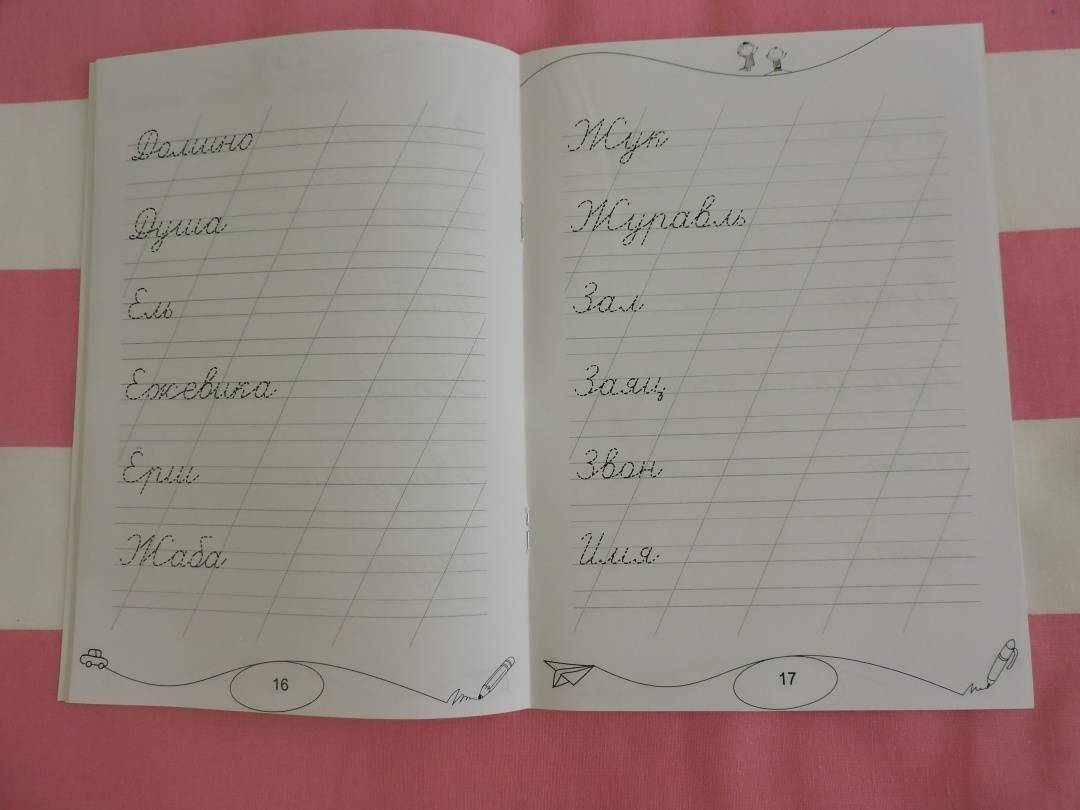 Домино
Душа
Ель
Ежевика
Ёрш
Жаба
16
Жук
Журавль
Зал
Заяц
Звон
Имя
17